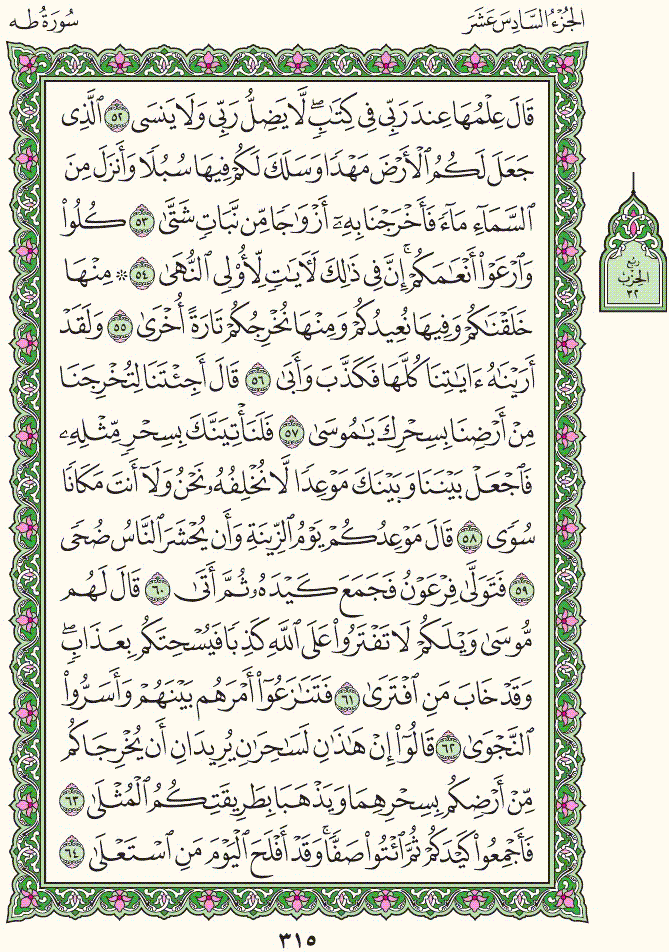 الجُزْءُ السَّادِسَ عَشَرَ
سُورَةُ طه
قَالَ عِلْمُهَا عِندَ رَبِّى فِى كِتَٰبٍۖ لَّا يَضِلُّ رَبِّى وَلَا يَنسَى ٥٢ ٱلَّذِى
جَعَلَ لَكُمُ ٱلْأَرْضَ مَهْدًا وَسَلَكَ لَكُمْ فِيهَا سُبُلًا وَأَنزَلَ مِنَ
ٱلسَّمَآءِ مَآءً فَأَخْرَجْنَا بِهِۦٓ أَزْوَٰجًا مِّن نَّبَاتٍ شَتَّىٰ ٥٣ كُلُوا۟
وَٱرْعَوْا۟ أَنْعَٰمَكُمْۗ إِنَّ فِى ذَٰلِكَ لَـَٔايَٰتٍ لِّأُو۟لِى ٱلنُّهَىٰ ٥٤ * مِنْهَا
خَلَقْنَٰكُمْ وَفِيهَا نُعِيدُكُمْ وَمِنْهَا نُخْرِجُكُمْ تَارَةً أُخْرَىٰ ٥٥ وَلَقَدْ
أَرَيْنَٰهُ ءَايَٰتِنَا كُلَّهَا فَكَذَّبَ وَأَبَىٰ ٥٦ قَالَ أَجِئْتَنَا لِتُخْرِجَنَا
مِنْ أَرْضِنَا بِسِحْرِكَ يَٰمُوسَىٰ ٥٧ فَلَنَأْتِيَنَّكَ بِسِحْرٍ مِّثْلِهِۦ
فَٱجْعَلْ بَيْنَنَا وَبَيْنَكَ مَوْعِدًا لَّا نُخْلِفُهُۥ نَحْنُ وَلَآ أَنتَ مَكَانًا
سُوًى ٥٨ قَالَ مَوْعِدُكُمْ يَوْمُ ٱلزِّينَةِ وَأَن يُحْشَرَ ٱلنَّاسُ ضُحًى
٥٩ فَتَوَلَّىٰ فِرْعَوْنُ فَجَمَعَ كَيْدَهُۥ ثُمَّ أَتَىٰ ٦٠ قَالَ لَهُم
مُّوسَىٰ وَيْلَكُمْ لَا تَفْتَرُوا۟ عَلَى ٱللَّهِ كَذِبًا فَيُسْحِتَكُم بِعَذَابٍۖ
وَقَدْ خَابَ مَنِ ٱفْتَرَىٰ ٦١ فَتَنَٰزَعُوٓا۟ أَمْرَهُم بَيْنَهُمْ وَأَسَرُّوا۟
ٱلنَّجْوَىٰ ٦٢ قَالُوٓا۟ إِنْ هَٰذَٰنِ لَسَٰحِرَٰنِ يُرِيدَانِ أَن يُخْرِجَاكُم
مِّنْ أَرْضِكُم بِسِحْرِهِمَا وَيَذْهَبَا بِطَرِيقَتِكُمُ ٱلْمُثْلَىٰ ٦٣
فَأَجْمِعُوا۟ كَيْدَكُمْ ثُمَّ ٱئْتُوا۟ صَفًّاۚ وَقَدْ أَفْلَحَ ٱلْيَوْمَ مَنِ ٱسْتَعْلَىٰ ٦٤
ربع
الحزب
٣٢
٣١٥